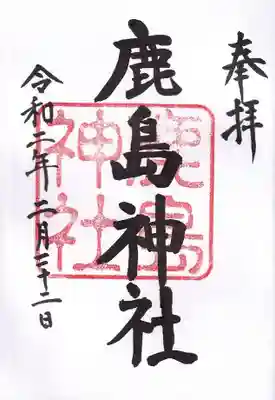 奉拝
鹿島神社
鹿島神社
令和二年二月二十二日